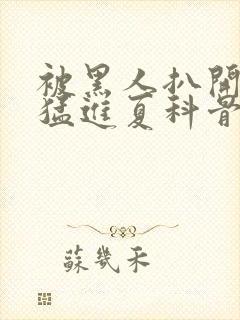 被黑人扒開
猛進夏科普
蘇幾禾